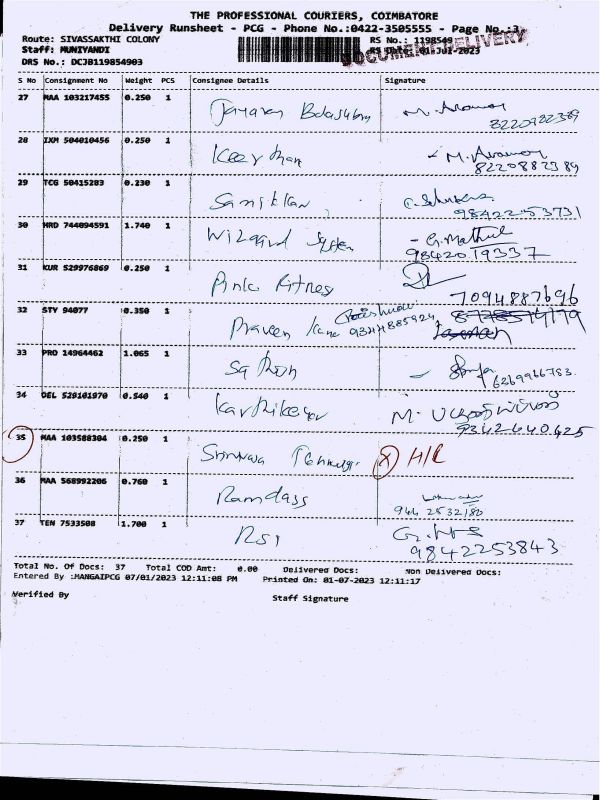 THE PROFESSIONAL COURIERS, COIMBATORE
Delivery Runsheet - PCG - Phone No.:0422-3505555 - Page No.:3
Route: SIVASSAKTHI COLONY RS No.: 1198549
Staff: MUNIYANDI RS Date: 01-Jul-2023
DOCUMENT DELIVERY
DRS No.: DCJB119854903
S No Consignment No Weight PCS Consignee Details Signature
27 MAA 103217455 0.250 1
28 IXM 504010456 0.250 1 Keerthan M.
8220882389
29 TCG 50415283 0.230 1
9842253731
30 HRD 744094591 1.740 1 Wizard System - G. Mathul
9842019337
31 KUR 529976869 0.250 1 Pink Fitness
7094887696
32 STY 94077 0.350 1 Praveen 9344885924
33 PRO 14964462 1.065 1 Sathish
6269966783
34 DEL 529101970 0.540 1 Karthikeyan M.
9342640425
35 MAA 103588304 0.250 1 H/L
36 MAA 568992206 0.760 1 Ramdass
37 TEN 7533508 1.700 1 RSI
9842253843
Total No. Of Docs: 37 Total COD Amt: 0.00 Delivered Docs: Non Delivered Docs:
Entered By :MANGAIPCG 07/01/2023 12:11:08 PM Printed On: 01-07-2023 12:11:17
Verified By Staff Signature